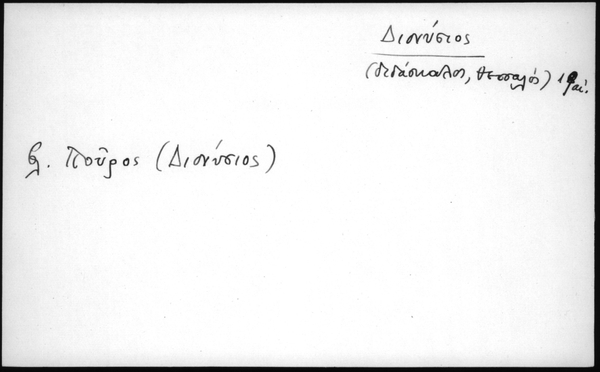 Διονύσιος
(διδάσκαλος, Θεσσαλός) 19 αἰ.
βλ. Ποῦρος (Διονύσιος)